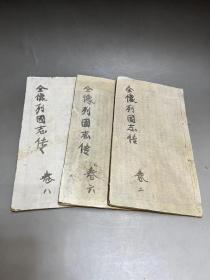 全像列國志传
卷二
全像列國志傳
卷六
全像列國志传
卷八